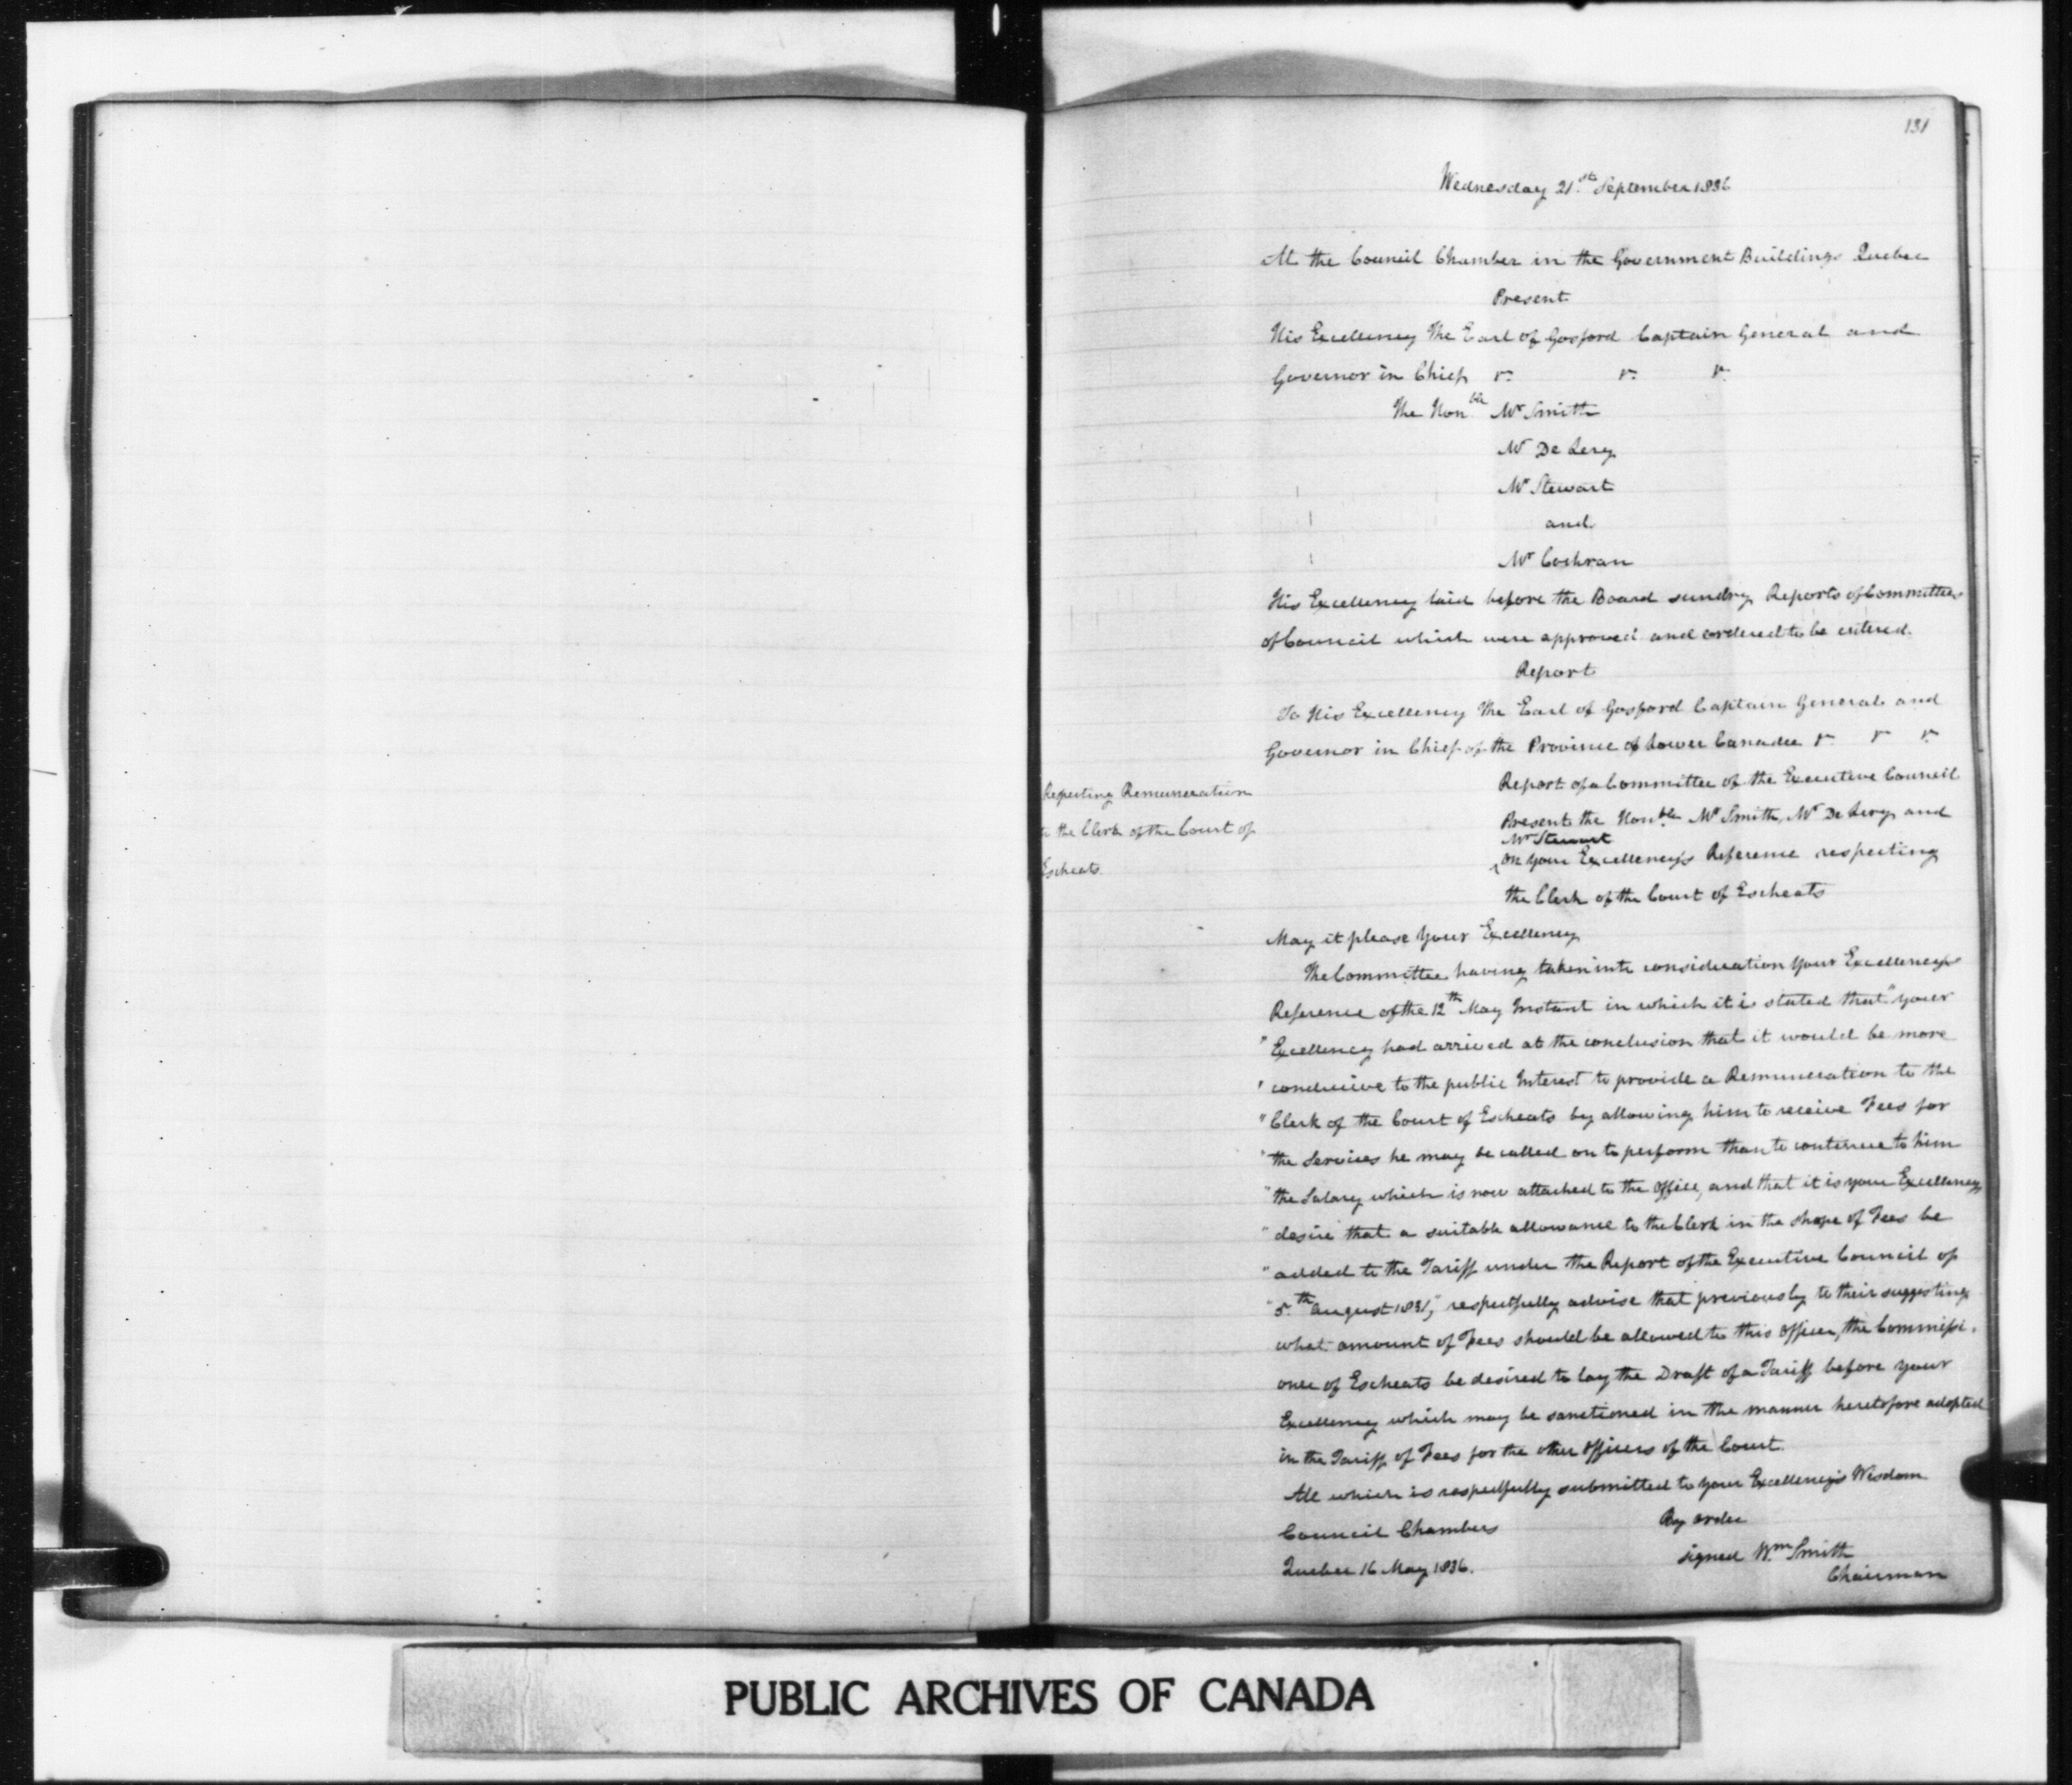 131
Wednesday 21.st September 1836
At the Council Chamber in the Government Buildings Quebec
Present
His Excellency The Earl of Gosford Captain General and
Governor in Chief &c &c &c
The Honble Mr Smith
Mr De Lery
Mr Stewart
and
Mr Cochran
His Excellency laid before the Board sundry Reports of Committees
of Council which were approved and ordered to be entered.
Report
To His Excellency The Earl of Gosford Captain General and
Governor in Chief of the Province of Lower Canada &c &c &c
Respecting Remuneration
to the Clerk of the Court of
Escheats
Report of a Committee of the Executive Council
Present the Honble Mr Smith, Mr De Lery and
Mr Stewart
On your Excellency's Reference respecting
the Clerk of the Court of Escheats
May it please Your Excellency
The Committee having taken into consideration Your Excellency's
Reference of the 12th May Instant in which it is stated that "your
" Excellency had arrived at the conclusion that it would be more
" conducive to the public Interest to provide a Remuneration to the
" Clerk of the Court of Escheats by allowing him to receive Fees for
" the Services he may be called on to perform than to continue to him
" the Salary which is now attached to the Office, and that it is your Excellency
" desire that a suitable allowance to the Clerk in the shape of Fees be
" added to the Tariff under the Report of the Executive Council of
" 5.th August 1831," respectfully advise that previously to their suggesting
what amount of Fees should be allowed to this Officer, the Commissi-
oner of Escheats be desired to lay the Draft of a Tariff before your
Excellency which may be sanctioned in the manner heretofore adopted
in the Tariff of Fees for the other Officers of the Court.
All which is respectfully submitted to your Excellency's Wisdom
Council Chambers
By order
Quebec 16 May 1836.
signed Wm Smith
Chairman
PUBLIC ARCHIVES OF CANADA